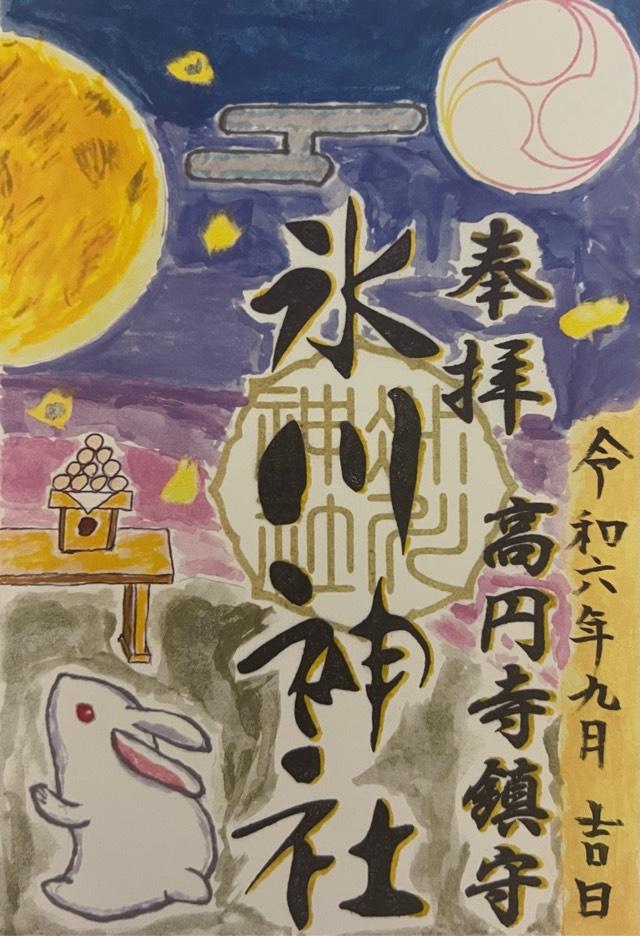 令和六年九月吉日
奉拝 高円寺鎮守
氷川神社
氷川
神社